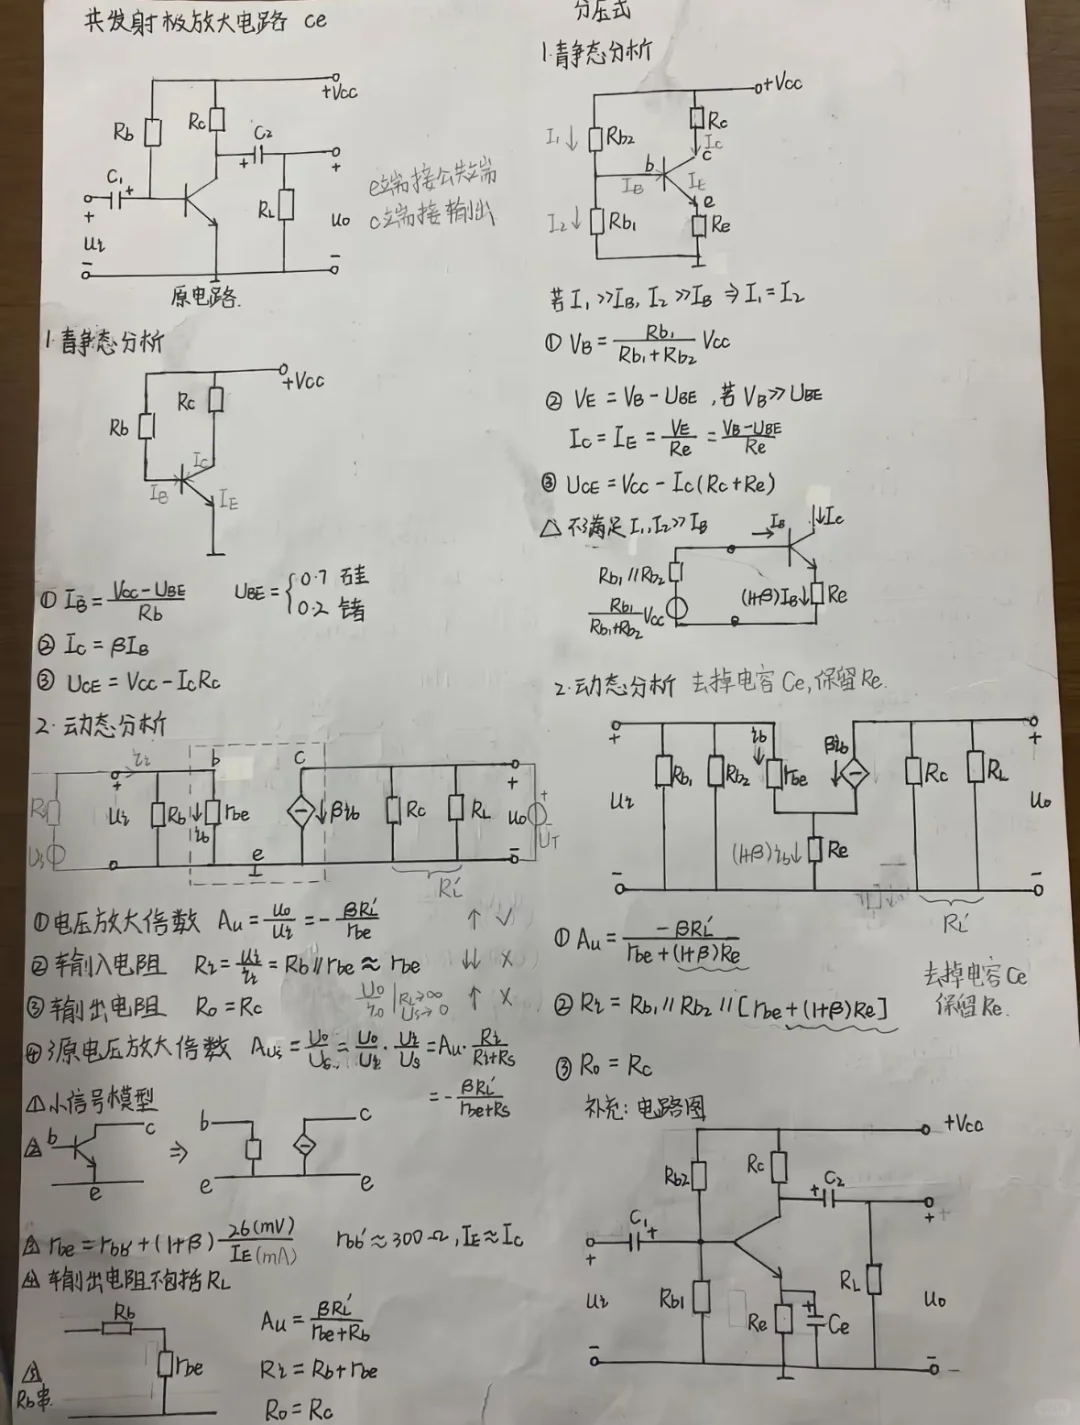 共发射极放大电路 ce
+Vcc
Rb
Rc
C2
C1
+
+
+
RL
+
Ui
Uo
原电路.
e端接公共端
c端接输出
1.静态分析
+Vcc
Rc
Rb
Ic
IB
IE
① IB = (Vcc-UBE)/Rb UBE={0.7 硅
0.2 锗
② Ic = βIB
③ UCE = Vcc - IcRc
2.动态分析
ii b c
Ui Rb ib rbe βib Rc RL Uo UT
Us
e
RL'
①电压放大倍数 Au = Uo/Ui = - βRL'/rbe ↑ ✓
②输入电阻 Ri = Ui/ii = Rb // rbe ≈ rbe ↓↓ ×
③输出电阻 Ro = Rc Uo/io | RL→∞ Us→0 ↑ ×
④源电压放大倍数 Aus = Uo/Us = Uo/Ui · Ui/Us = Au · Ri/(Ri+Rs)
= - βRL'/(rbe+Rs)
△1 小信号模型
△2 b c ⇒ b c
e e e
△3 rbe = rbb' + (1+β) 26(mV)/IE(mA) rbb' ≈ 300Ω, IE ≈ Ic
△4 输出电阻不包括RL
Rb
rbe
△5
Rb串.
Au = βRL'/(rbe+Rb)
Ri = Rb + rbe
Ro = Rc
分压式
1.静态分析
+Vcc
I1↓ Rb2 Rc
Ic
b c
IB IE
e
I2↓ Rb1 Re
若 I1 >> IB, I2 >> IB ⇒ I1 = I2
① VB = Rb1/(Rb1+Rb2) Vcc
② VE = VB - UBE, 若 VB >> UBE
Ic = IE = VE/Re = (VB-UBE)/Re
③ UCE = Vcc - Ic(Rc+Re)
△ 不满足 I1, I2 >> IB
IB ↓Ic
Rb1 // Rb2
Rb1/(Rb1+Rb2) Vcc
(1+β)IB↓ Re
2.动态分析 去掉电容Ce,保留Re.
+ ib βib +
Ui Rb1 Rb2 rbe Rc RL Uo
(1+β)ib↓ Re
RL'
① Au = -βRL'/(rbe+(1+β)Re)
② Ri = Rb1 // Rb2 // [rbe+(1+β)Re]
去掉电容Ce
保留Re.
③ Ro = Rc
补充: 电路图
+Vcc
Rb2
Rc
C2
C1
+
+
+
RL
+
Ui
Rb1
Re
Ce
Uo